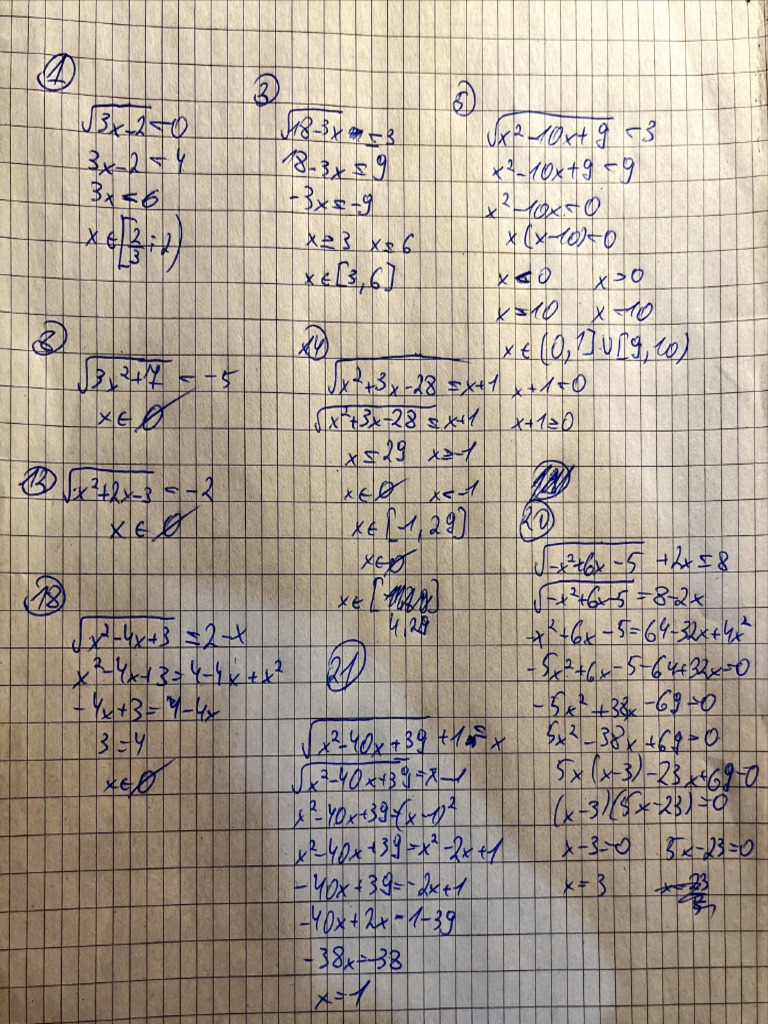 ①
√(3x-2) < 0
3x-2 < 4
3x < 6
x ∈ [2/3 ; 2)
③
√(18-3x) ≤ 3
18-3x ≤ 9
-3x ≤ -9
x ≥ 3 x ≤ 6
x ∈ [3,6]
⑤
√(x²-10x+9) < 3
x²-10x+9 < 9
x²-10x < 0
x(x-10) < 0
x < 0 x > 0
x > 10 x < 10
x ∈ (0,1] ∪ [9,10)
⑧
√(3x²+7) < -5
x ∈ ∅
⑭
√(x²+3x-28) ≤ x+1 x+1 < 0
√(x²+3x-28) ≤ x+1 x+1 ≥ 0
x ≤ 29 x ≥ -1
x ∈ ∅ x < -1
x ∈ [-1, 29]
x ∈ ∅
x ∈ [
4, 29
⑬ √(x²+2x-3) < -2
x ∈ ∅
⑱
√(x²-4x+3) = 2-x
x²-4x+3 = 4-4x+x²
-4x+3 = 4-4x
3 = 4
x ∈ ∅
㉑
√(x²-40x+39) + 1 = x
√(x²-40x+39) = x-1
x²-40x+39 = (x-1)²
x²-40x+39 = x²-2x+1
-40x+39 = -2x+1
-40x+2x = 1-39
-38x = -38
x = 1
⑳
√(-x²+6x-5) + 2x = 8
√(-x²+6x-5) = 8-2x
-x²+6x-5 = 64-32x+4x²
-5x²+6x-5-64+32x = 0
-5x²+38x-69 = 0
5x²-38x+69 = 0
5x(x-3)-23x+69 = 0
(x-3)(5x-23) = 0
x-3 = 0 5x-23 = 0
x = 3